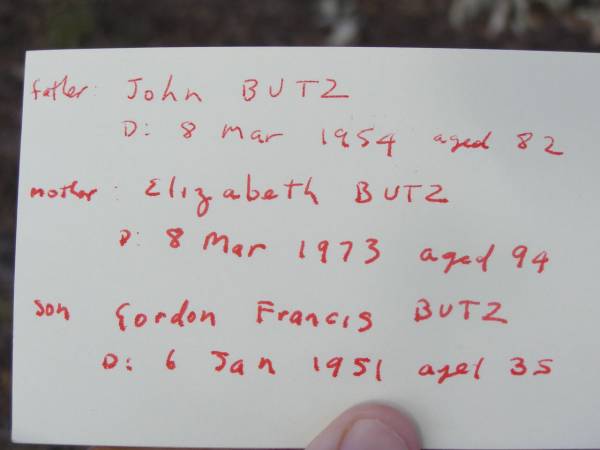 father: John BUTZ
D: 8 Mar 1954 aged 82
mother: Elizabeth BUTZ
D: 8 Mar 1973 aged 94
son Gordon Francis BUTZ
D: 6 Jan 1951 aged 35